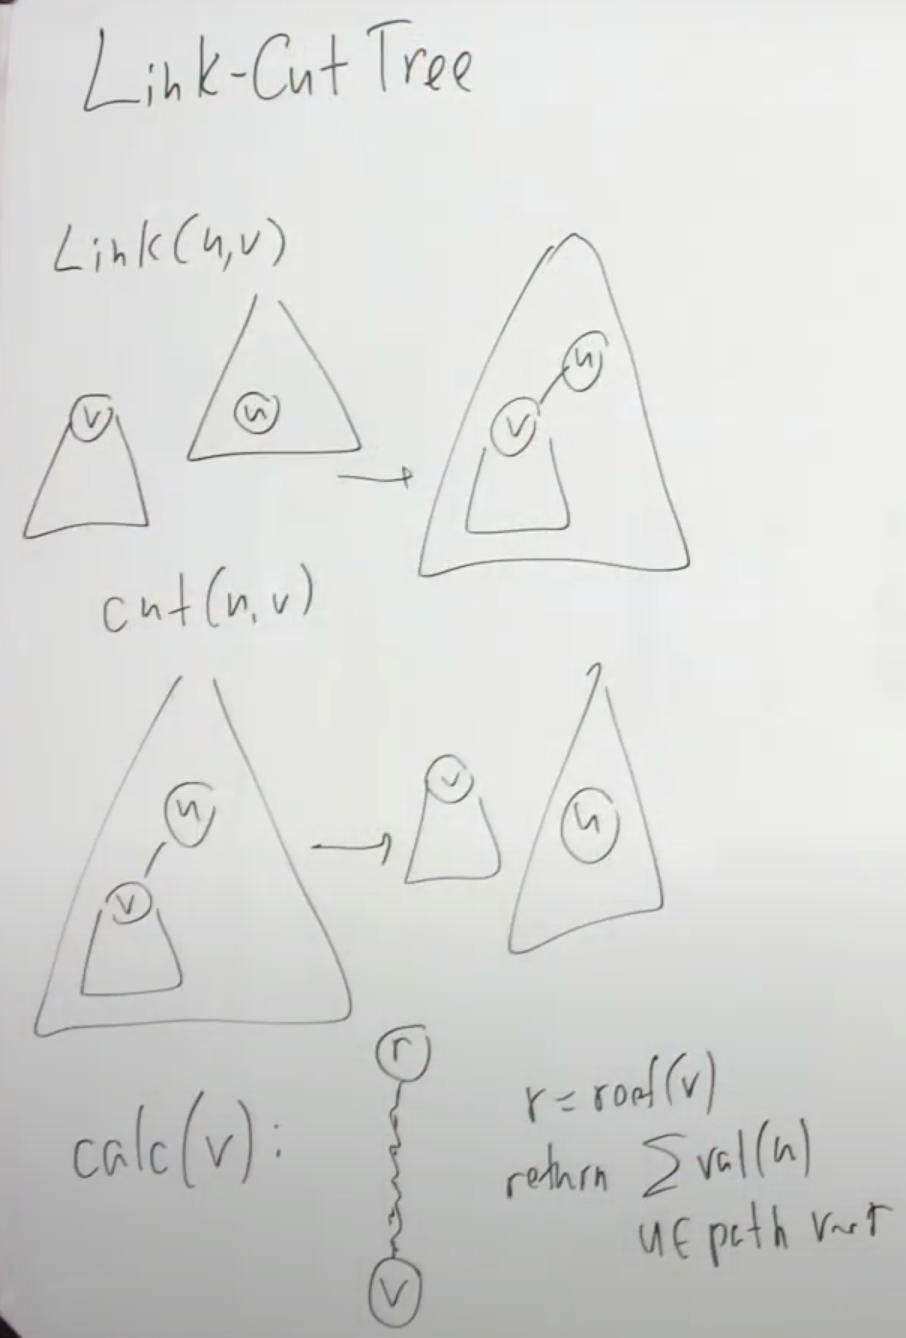 Link-Cut Tree
Link(u,v)
v u v u
cut(u,v)
u v v u
r
calc(v):
r = root(v)
return Σ val(u)
u∈path v~r
v